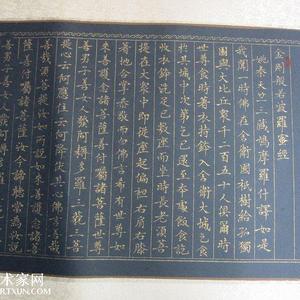 金剛般若波羅蜜經
姚秦天竺三藏鳩摩羅什譯如是
我聞一時佛在舍衛國祇樹給孤獨
園與大比丘眾千二百五十人俱爾時
世尊食時著衣持鉢入舍衛大城乞食
於其城中次第乞已還至本處飯食訖
收衣鉢洗足已敷座而坐時長老須菩
提在大眾中即從座起偏袒右肩右膝
著地合掌恭敬而白佛言希有世尊如
來善護念諸菩薩善付囑諸菩薩世尊
善男子善女人發阿耨多羅三藐三菩
提心云何應住云何降伏其心佛言善哉
善哉須菩提如汝所說如來善護念諸菩
薩善付囑諸菩薩汝今諦聽當為汝說
善男子善女人發阿耨多羅三藐三菩
术家网
RTXUN.COM